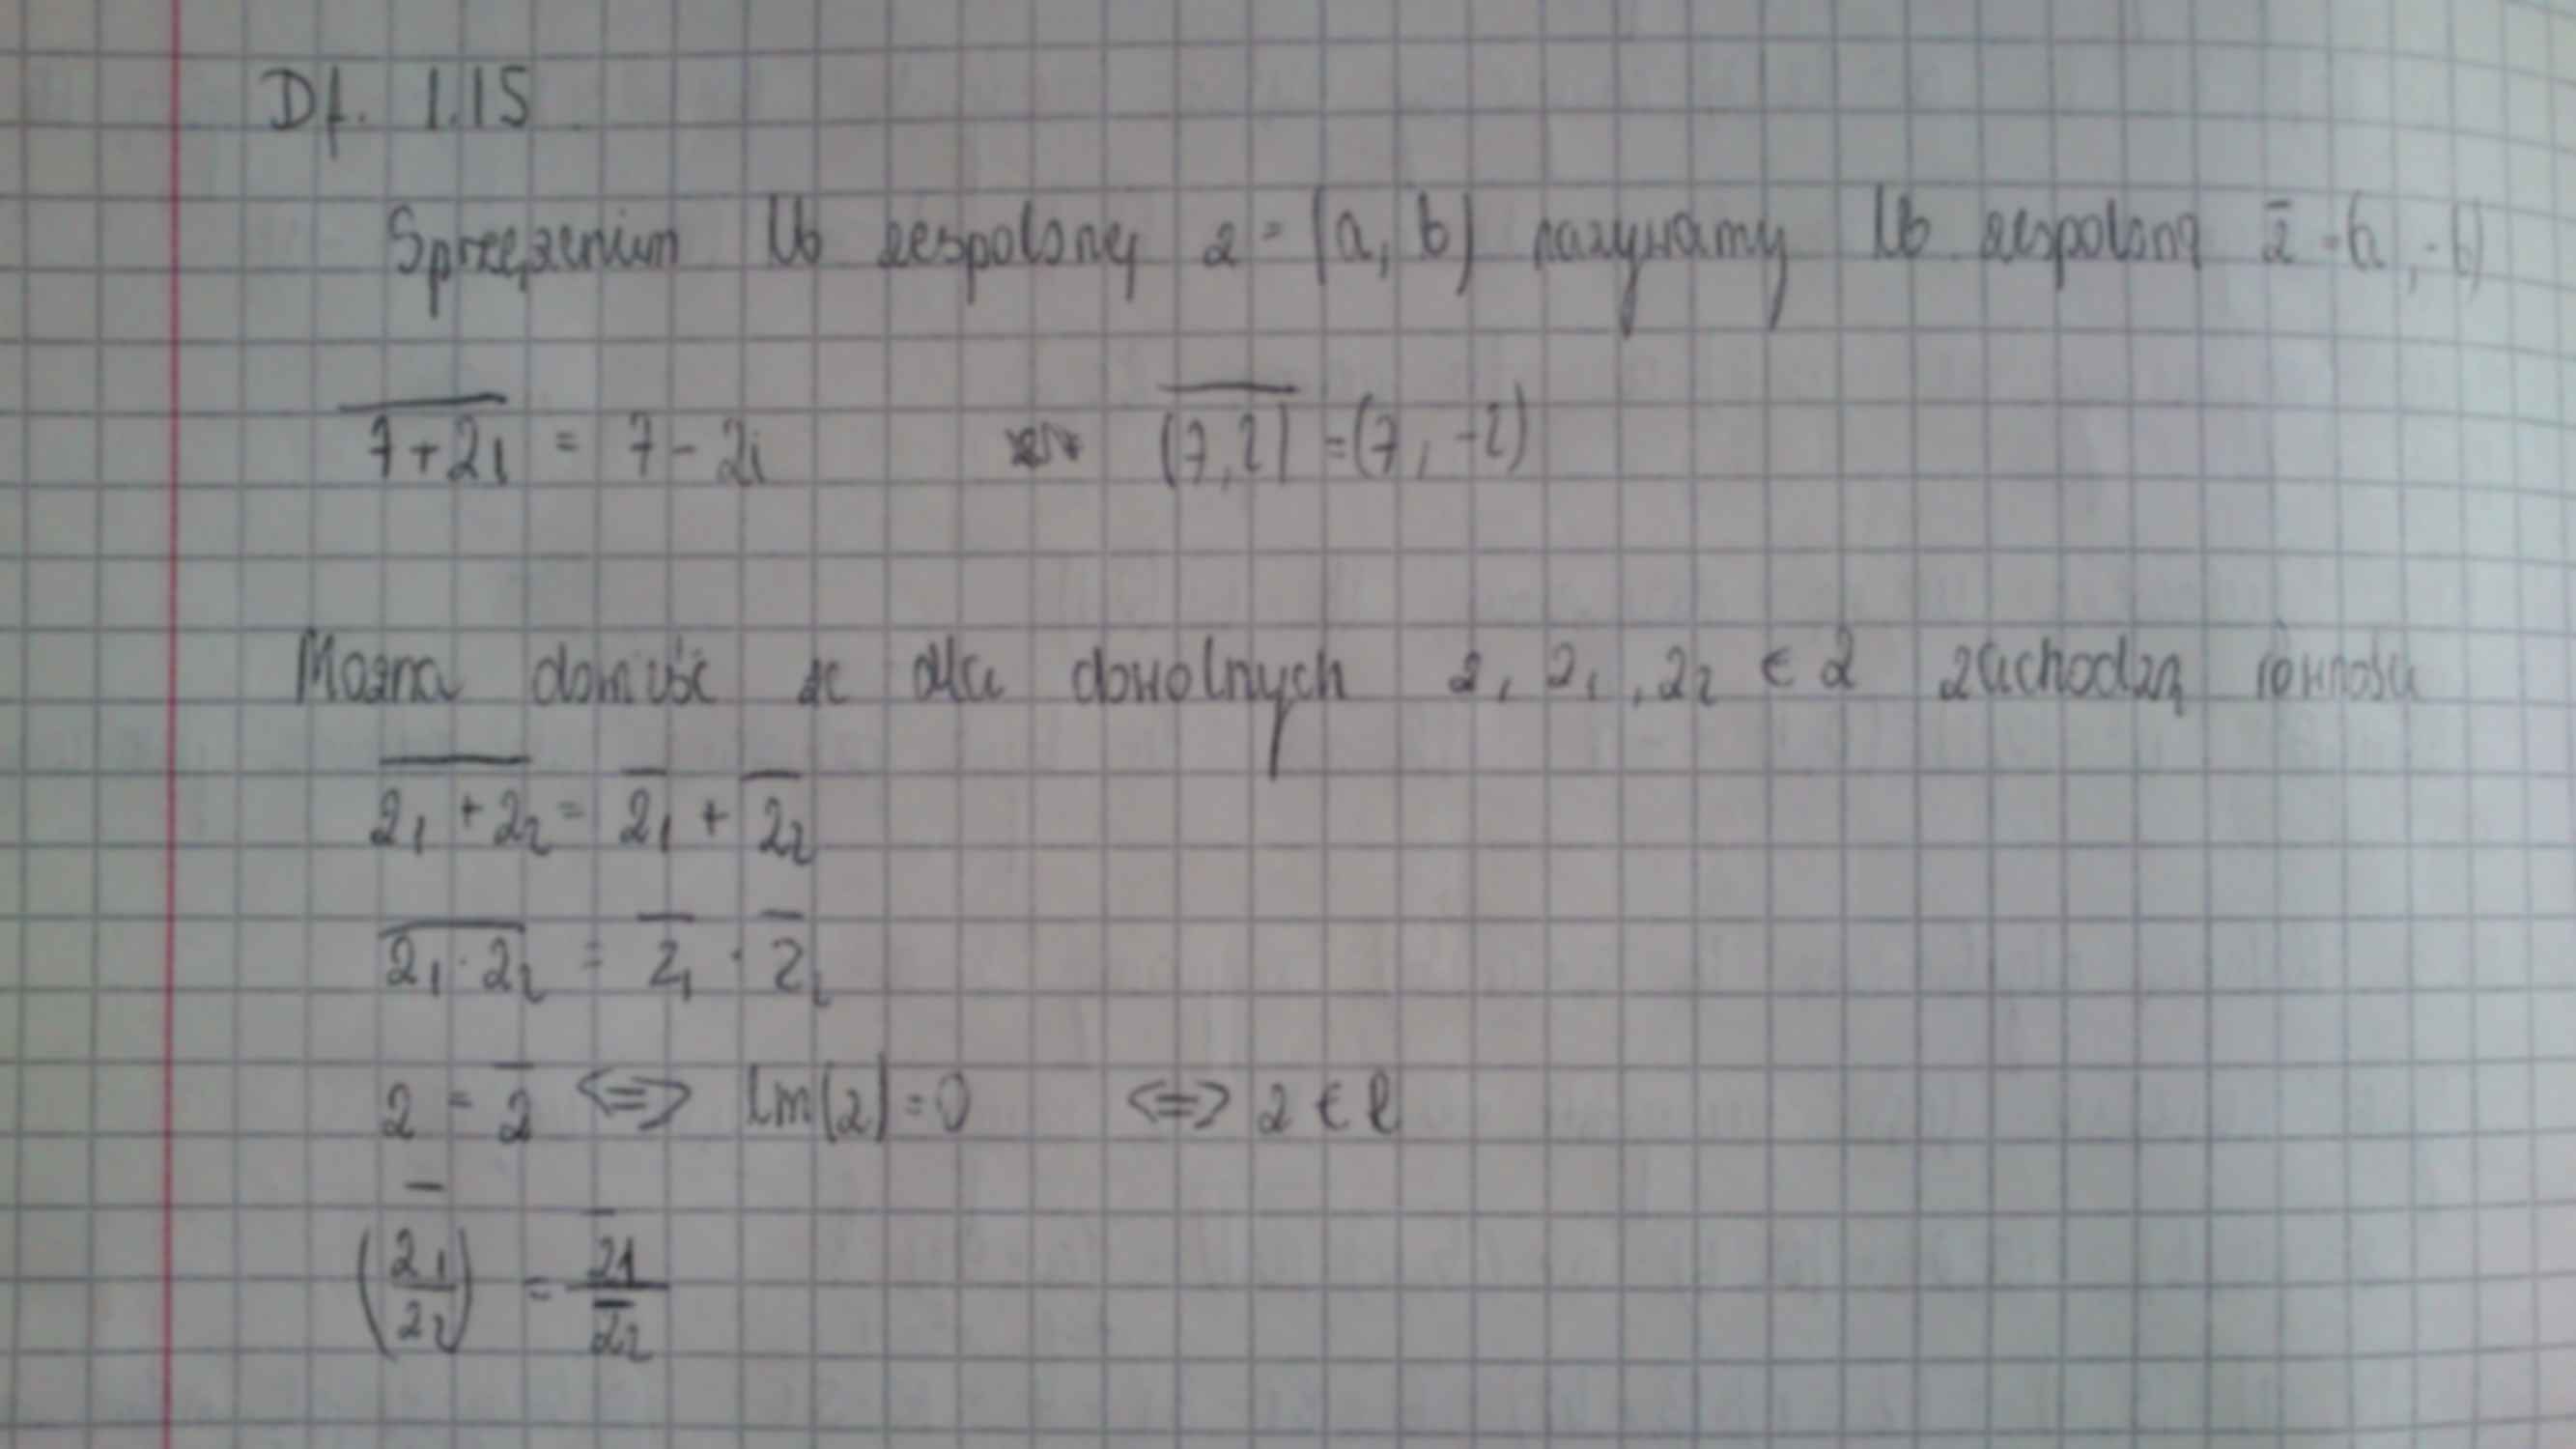 Df. 1.15
Sprzężenium lb zespolonej z = (a, b) nazywamy lb zespoloną z̄ = (a, -b)
\overline{7+2i} = 7 - 2i \overline{(7,2)} = (7, -2)
Można że dla dowolnych z, z₁, z₂ ∈ z zachodzą równości
\overline{z₁ + z₂} = \overline{z₁} + \overline{z₂}
\overline{z₁ · z₂} = \overline{z₁} · \overline{z₂}
z = \overline{z} <=> Im(z) = 0 <=> z ∈ R
\overline{(z₁/z₂)} = \overline{z₁}/\overline{z₂}